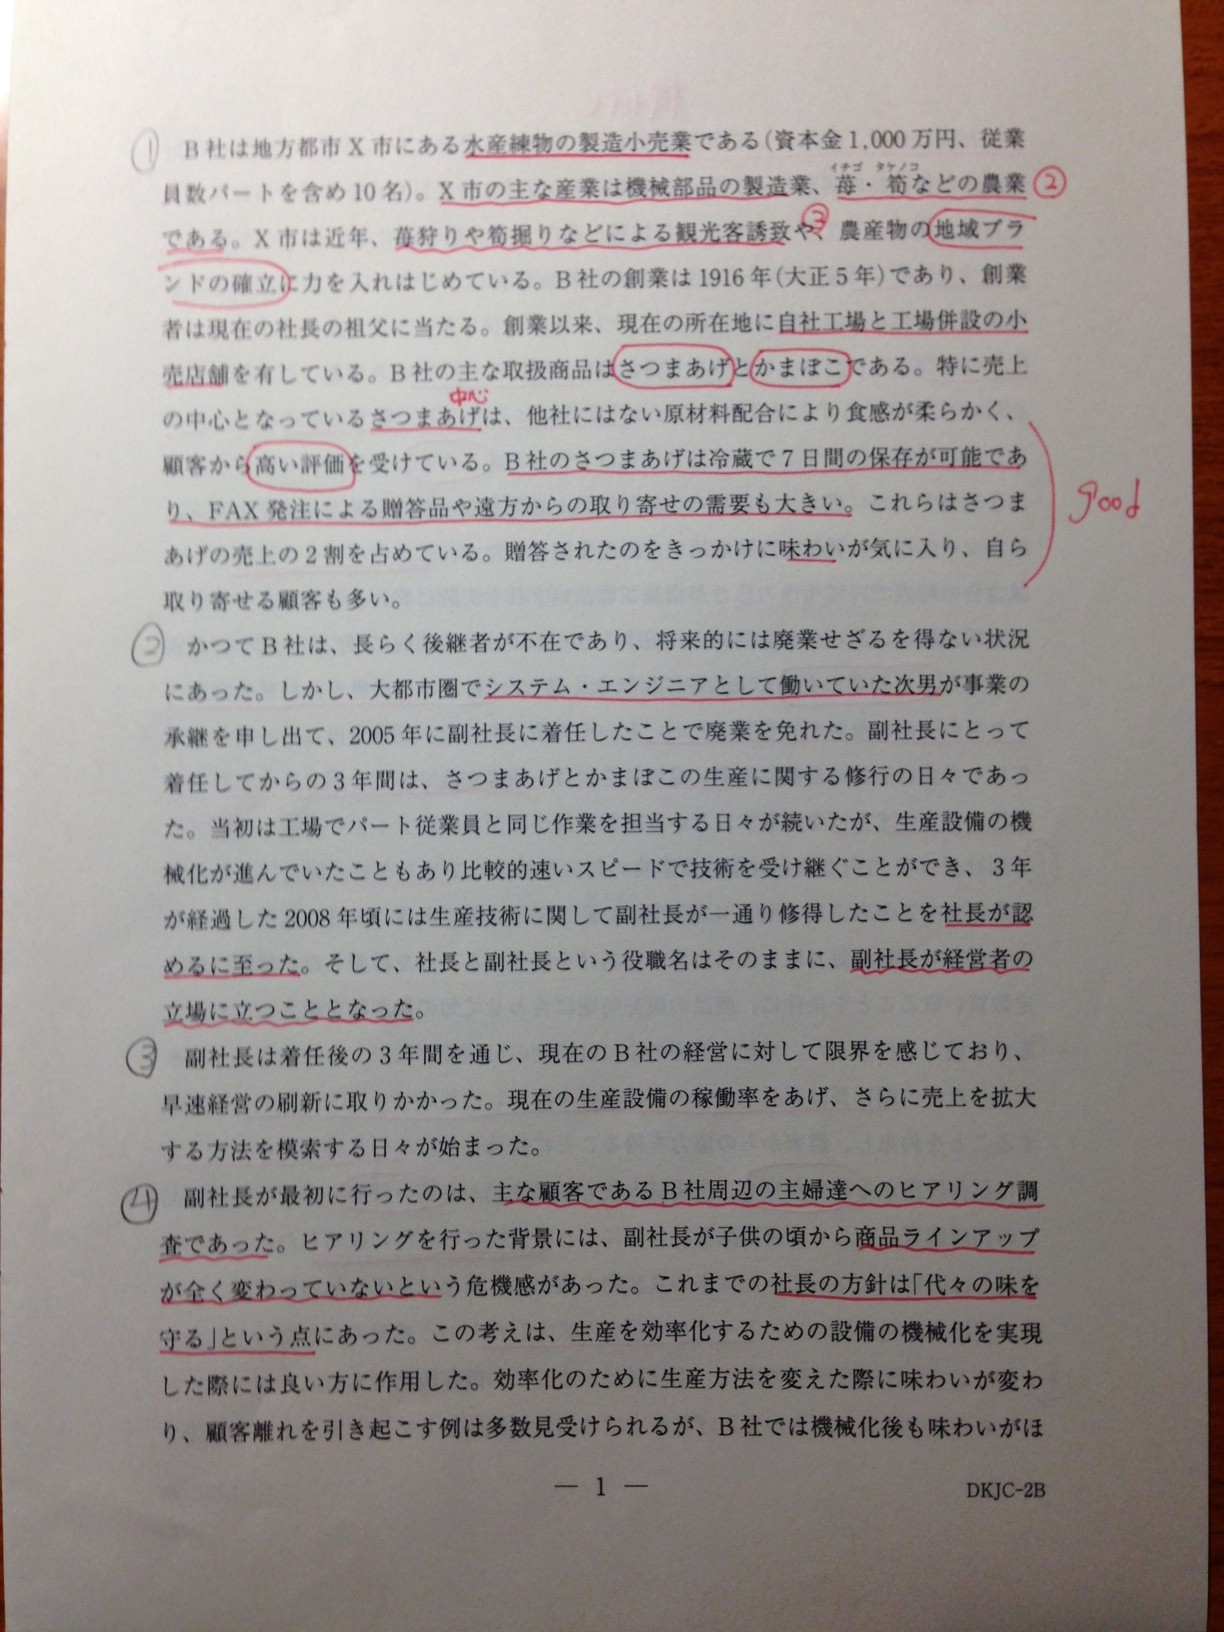 ① B社は地方都市X市にある水産練物の製造小売業である(資本金1,000万円、従業
イチゴ タケノコ
員数パートを含め10名)。X市の主な産業は機械部品の製造業、苺・筍などの農業 ②
である。X市は近年、苺狩りや筍掘りなどによる観光客誘致や、③農産物の地域ブラ
ンドの確立に力を入れはじめている。B社の創業は1916年(大正5年)であり、創業
者は現在の社長の祖父に当たる。創業以来、現在の所在地に自社工場と工場併設の小
売店舗を有している。B社の主な取扱商品はさつまあげとかまぼこである。特に売上
中心
の中心となっているさつまあげは、他社にはない原材料配合により食感が柔らかく、
顧客から高い評価を受けている。B社のさつまあげは冷蔵で7日間の保存が可能であ
り、FAX発注による贈答品や遠方からの取り寄せの需要も大きい。これらはさつま
good
あげの売上の2割を占めている。贈答されたのをきっかけに味わいが気に入り、自ら
取り寄せる顧客も多い。
② かつてB社は、長らく後継者が不在であり、将来的には廃業せざるを得ない状況
にあった。しかし、大都市圏でシステム・エンジニアとして働いていた次男が事業の
承継を申し出て、2005年に副社長に着任したことで廃業を免れた。副社長にとって
着任してからの3年間は、さつまあげとかまぼこの生産に関する修行の日々であっ
た。当初は工場でパート従業員と同じ作業を担当する日々が続いたが、生産設備の機
械化が進んでいたこともあり比較的速いスピードで技術を受け継ぐことができ、3年
が経過した2008年頃には生産技術に関して副社長が一通り修得したことを社長が認
めるに至った。そして、社長と副社長という役職名はそのままに、副社長が経営者の
立場に立つこととなった。
③ 副社長は着任後の3年間を通じ、現在のB社の経営に対して限界を感じており、
早速経営の刷新に取りかかった。現在の生産設備の稼働率をあげ、さらに売上を拡大
する方法を模索する日々が始まった。
④ 副社長が最初に行ったのは、主な顧客であるB社周辺の主婦達へのヒアリング調
査であった。ヒアリングを行った背景には、副社長が子供の頃から商品ラインアップ
が全く変わっていないという危機感があった。これまでの社長の方針は「代々の味を
守る」という点にあった。この考えは、生産を効率化するための設備の機械化を実現
した際には良い方に作用した。効率化のために生産方法を変えた際に味わいが変わ
り、顧客離れを引き起こす例は多数見受けられるが、B社では機械化後も味わいがほ
— 1 —
DKJC-2B